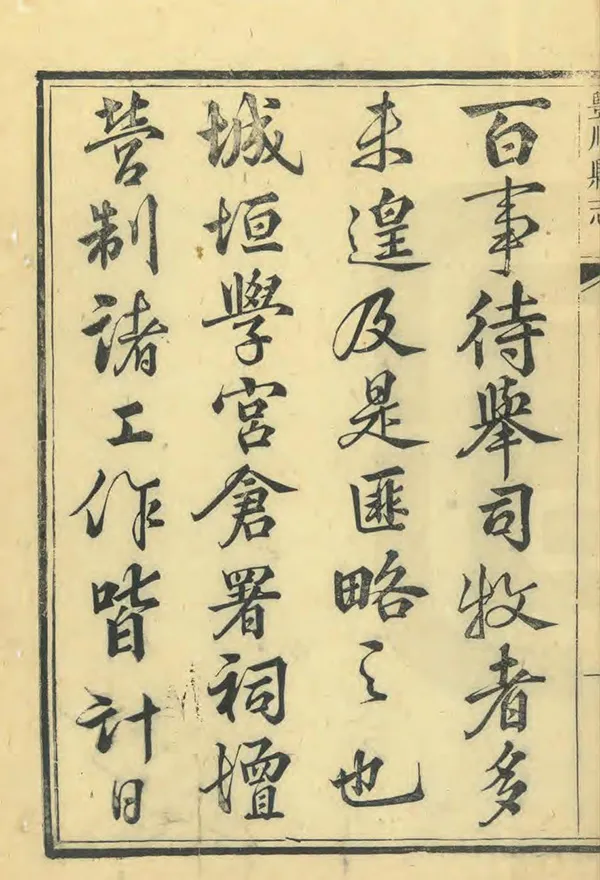 豐順縣志
百事待舉司牧者多
未遑及是匪略之也
城垣學宮倉署祠壇
營制諸工作皆計日